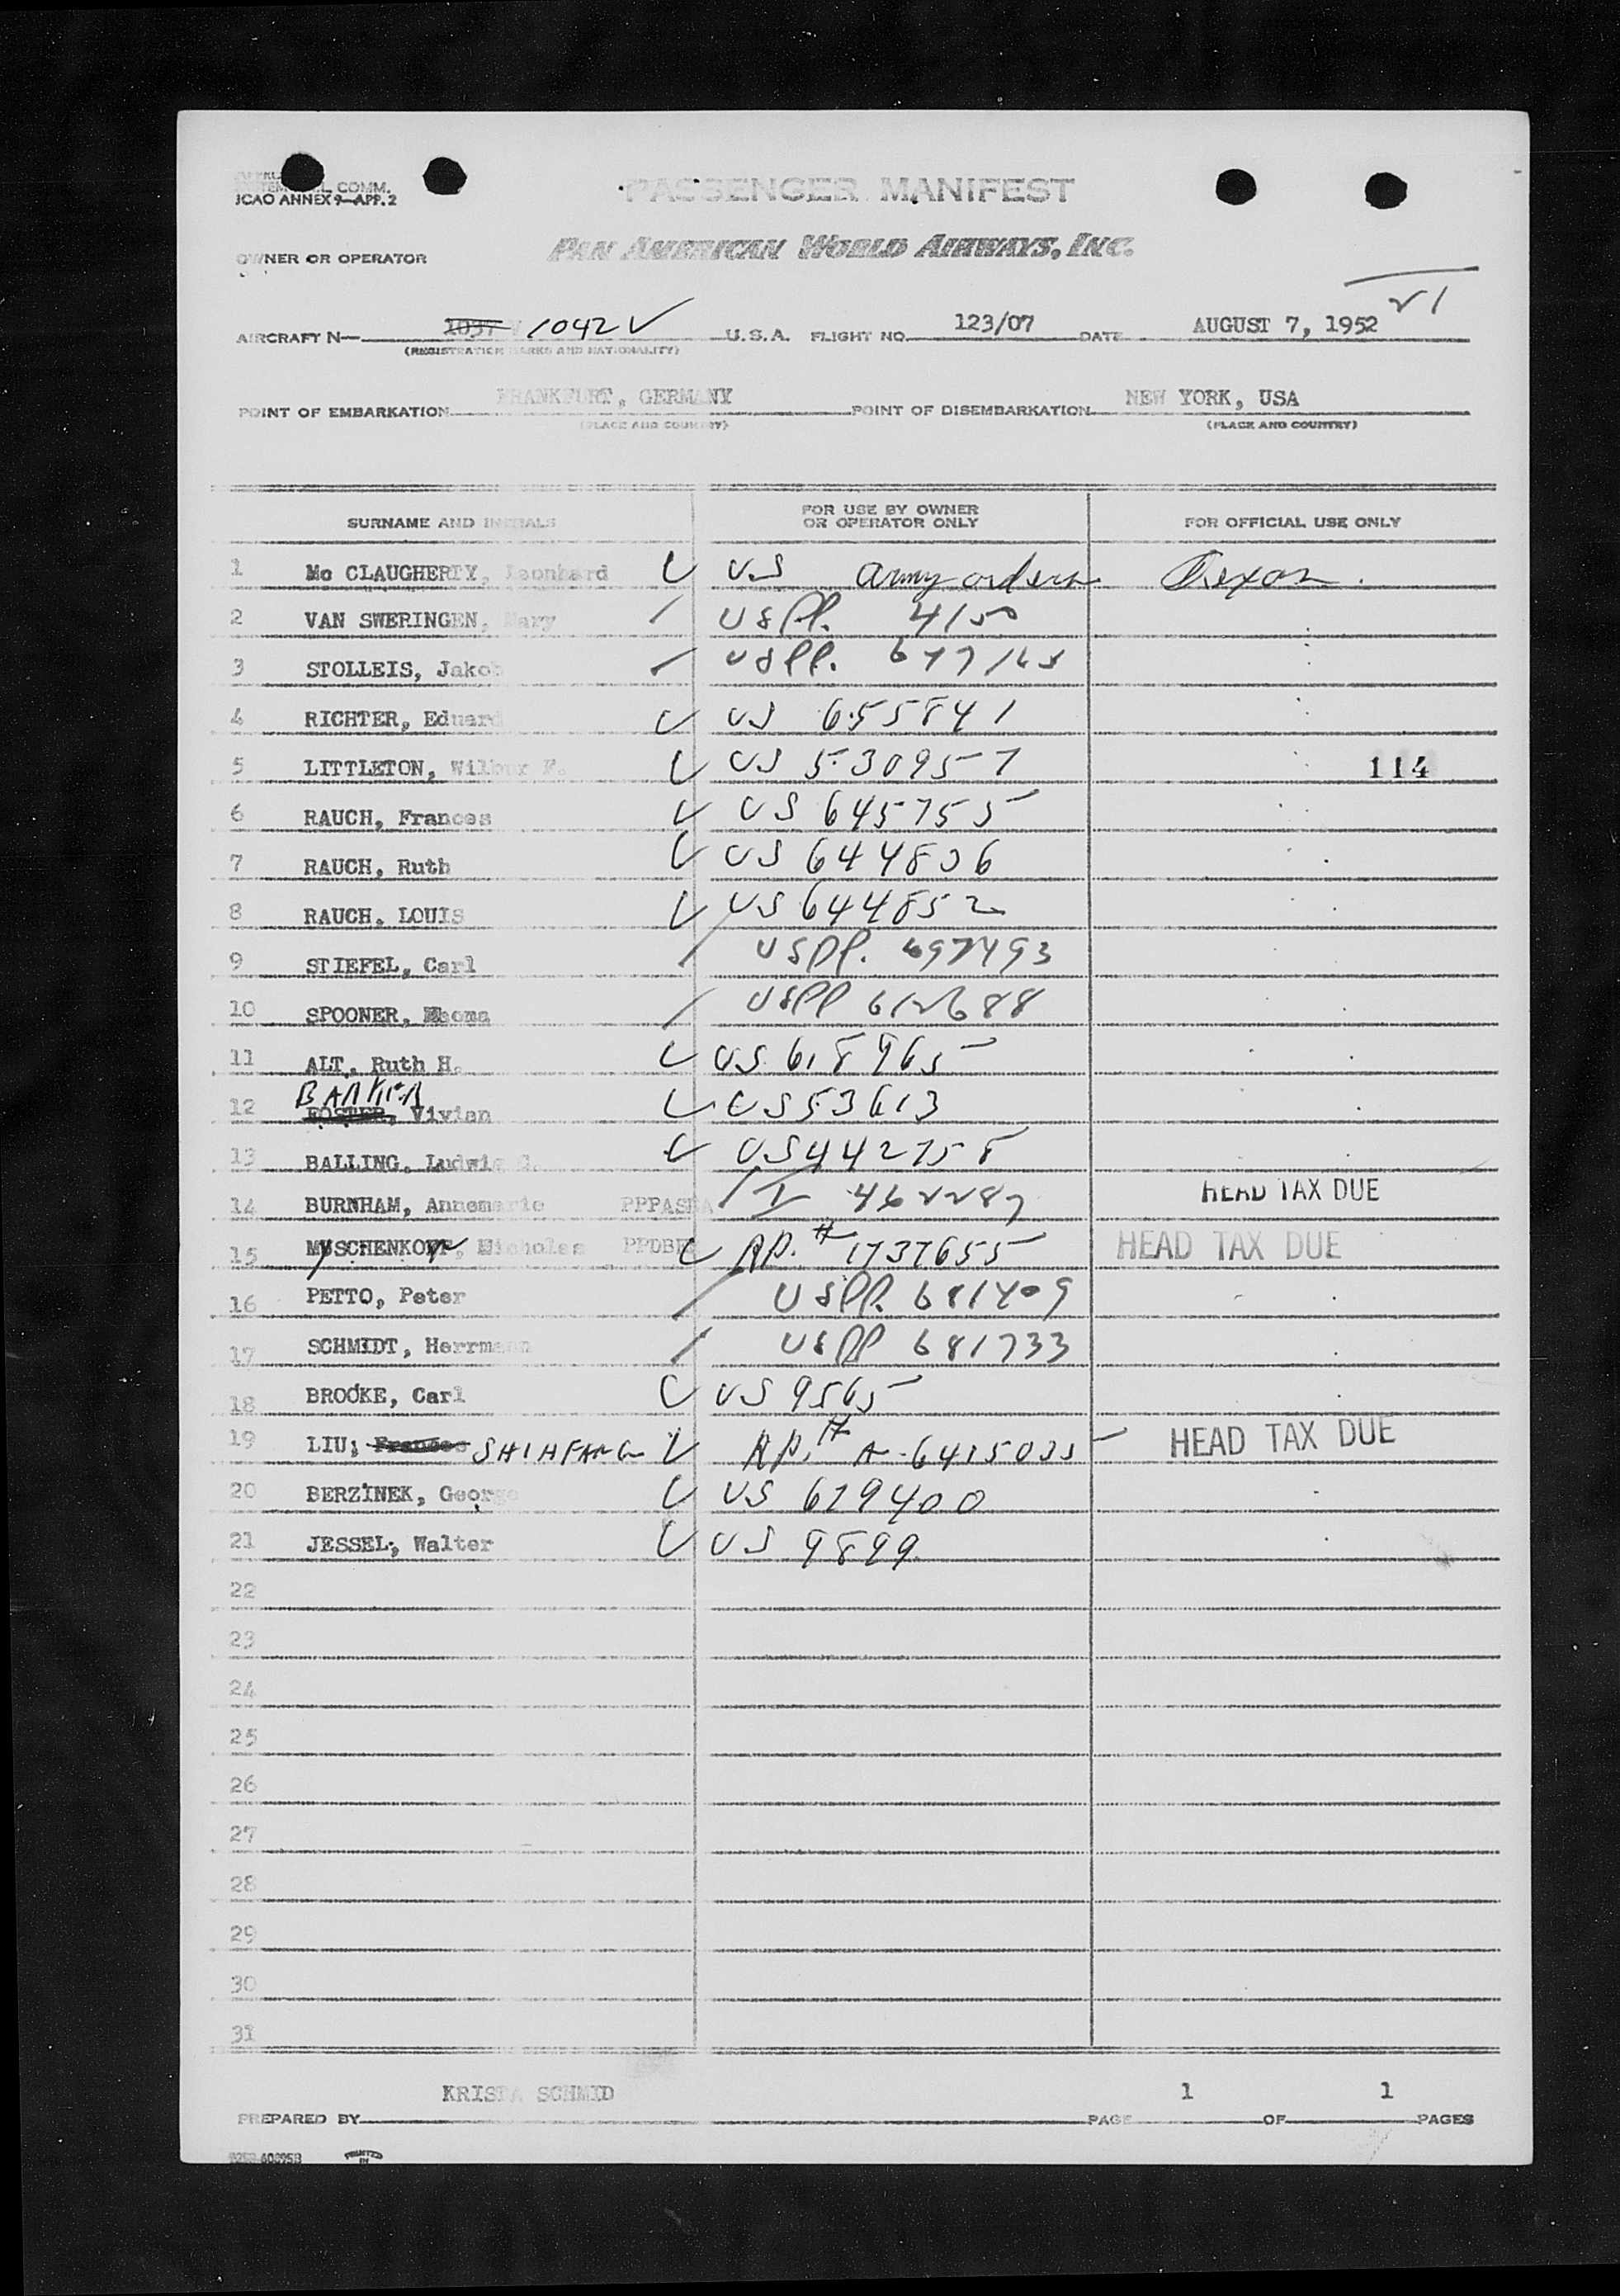 COMM.
ICAO ANNEX 9—APP. 2
PASSENGER MANIFEST
PAN AMERICAN WORLD AIRWAYS, INC.
OWNER OR OPERATOR
21
AIRCRAFT N— 1037 V 1042 V U.S.A. FLIGHT NO. 123/07 DATE AUGUST 7, 1952
(REGISTRATION MARKS AND NATIONALITY)
POINT OF EMBARKATION FRANKFURT, GERMANY POINT OF DISEMBARKATION NEW YORK, USA
(PLACE AND COUNTRY) (PLACE AND COUNTRY)
SURNAME AND INITIALS FOR USE BY OWNER OR OPERATOR ONLY FOR OFFICIAL USE ONLY
1 Mc CLAUGHERTY, Leonhard US Army orders
2 VAN SWERINGEN, Mary USPP. 4150
3 STOLLEIS, Jakob USPP.
4 RICHTER, Eduard US 655841
5 LITTLETON, Wilbur F. US 530957 114
6 RAUCH, Frances US 645755
7 RAUCH, Ruth US 644836
8 RAUCH, LOUIS US 644852
9 STIEFEL, Carl USPP. 697493
10 SPOONER, USPP 612688
11 ALT, Ruth H. US 618965
BARKER
12 FOSTER, Vivian US 53613
13 BALLING, Ludwig US 442758
14 BURNHAM, Annemarie I 462287 HEAD TAX DUE
15 MYSCHENKOFF, Nicholas RP. # 1737655 HEAD TAX DUE
16 PETTO, Peter USPP. 681409
17 SCHMIDT, Herrmann USPP 681733
18 BROOKE, Carl US 9565
19 LIU, Frances SHIHFANG RP. # A-6415035 HEAD TAX DUE
20 BERZINEK, George US 679400
21 JESSEL, Walter US 9899
22
23
24
25
26
27
28
29
30
31
PREPARED BY KRISTA SCHMID PAGE 1 OF 1 PAGES
PRINTED IN